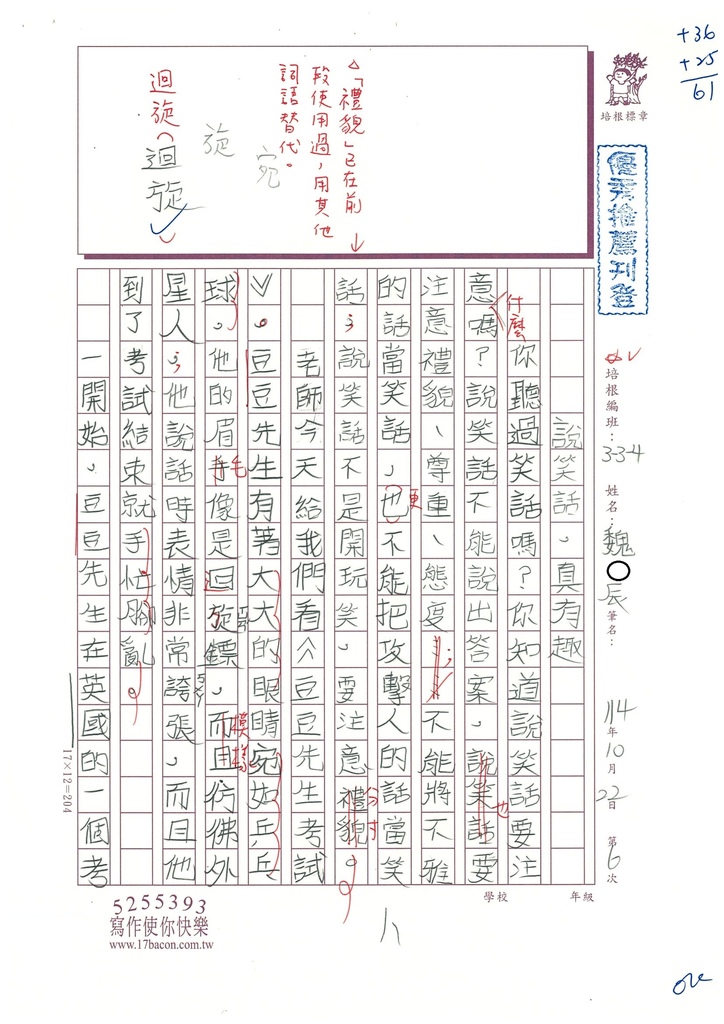 +36
+25
61
培根標章
優秀推薦刊登
培根編班：334
姓名：魏○辰
筆名：
114年10月22日
第6次
△「禮貌」已在前
段使用過，用其他
詞語替代。
宛
旋
迴旋
迴旋
說笑話，真有趣
你聽過笑話嗎？你知道說笑話要注
意嗎？說笑話不能說出答案，說笑話要
什麼
也
注意禮貌、尊重、態度
不能將不雅
；
的話當笑話，也不能把攻擊人的話當笑
更
話；說笑話不是開玩笑，要注意禮貌。
分寸
老師今天給我們看《豆豆先生考試
》。豆豆先生有著大大的眼睛宛如乒乓
球，他的眉
像是迴旋鏢，而且彷彿外
毛
模樣
星人；他說話時表情非常誇張，而且他
到了考試結束就手忙腳亂。
一開始，豆豆先生在英國的一個考
17×12=204
學校
年級
5255393
寫作使你快樂
www.17bacon.com.tw